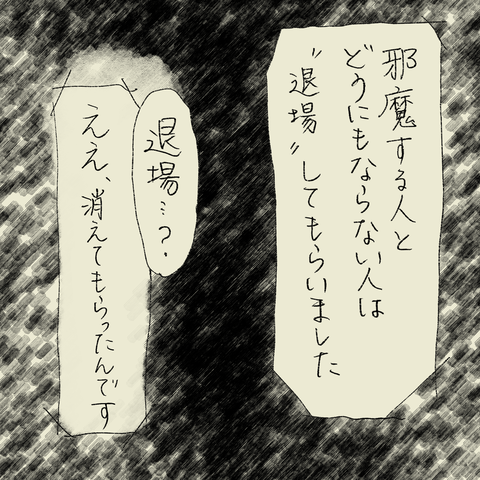 邪魔する人と
どうにもならない人は
〝退場〟してもらいました
退場…?.
ええ、消えてもらったんです